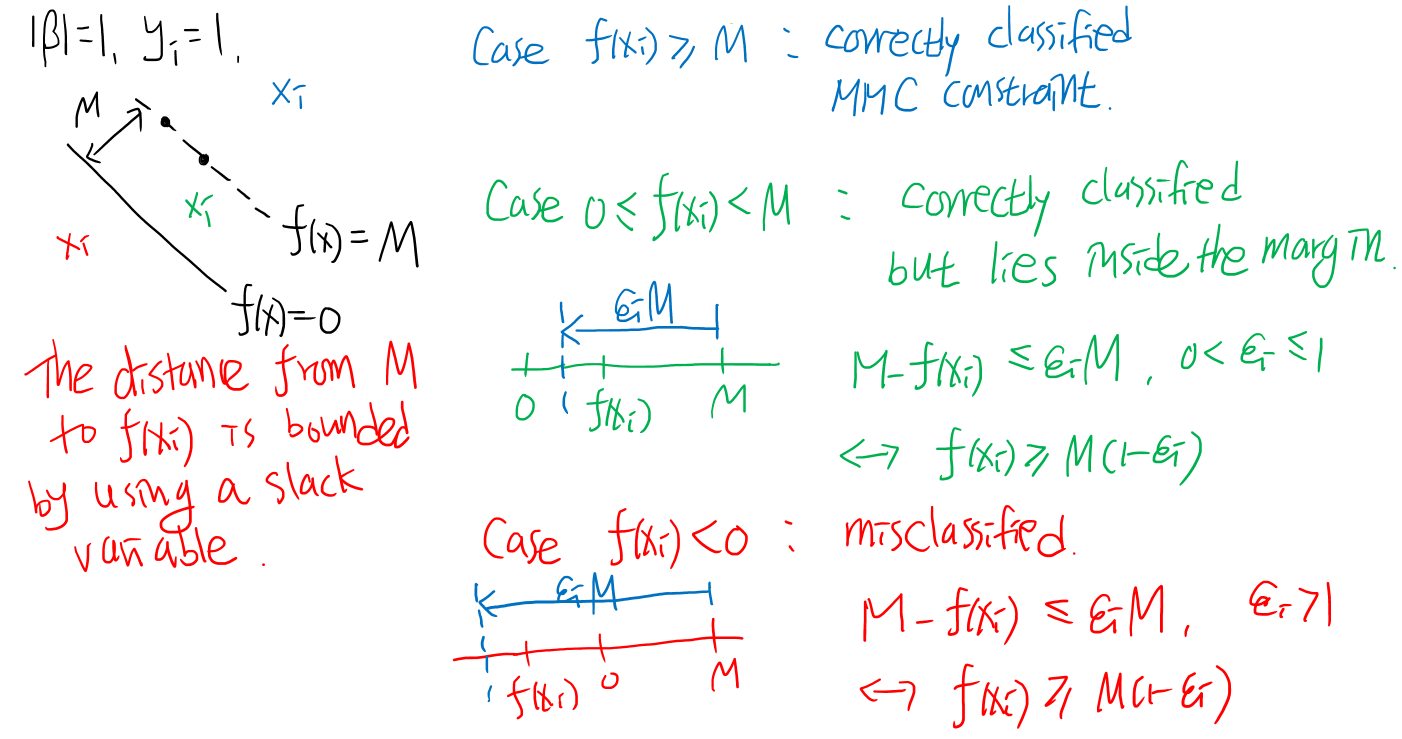 |β|=1, y_i=1.
x_i
M
x_i
x_i
f(x)=M
f(x)=0
The distance from M
to f(x_i) is bounded
by using a slack
variable.
Case f(x_i) ≥ M : correctly classified
MMC constraint.
Case 0 ≤ f(x_i) < M : correctly classified
but lies inside the margin.
ϵ_i M
0 f(x_i) M
M - f(x_i) ≤ ϵ_i M , 0 < ϵ_i ≤ 1
↔ f(x_i) ≥ M(1-ϵ_i)
Case f(x_i) < 0 : misclassified.
ϵ_i M
f(x_i) 0 M
M - f(x_i) ≤ ϵ_i M , ϵ_i > 1
↔ f(x_i) ≥ M(1-ϵ_i)